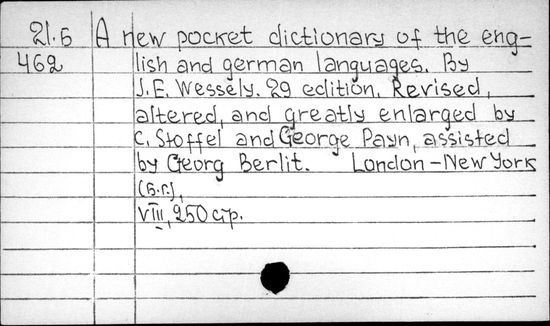 21.6 A new pocket dictionary of the eng-
462 lish and german languages. By
J.E. Wessely. 29 edition. Revised,
altered, and greatly enlarged by
C. Stoffel and George Payn, assisted
by Georg Berlit. London – New York
(б.г.),
VIII, 250 стр.